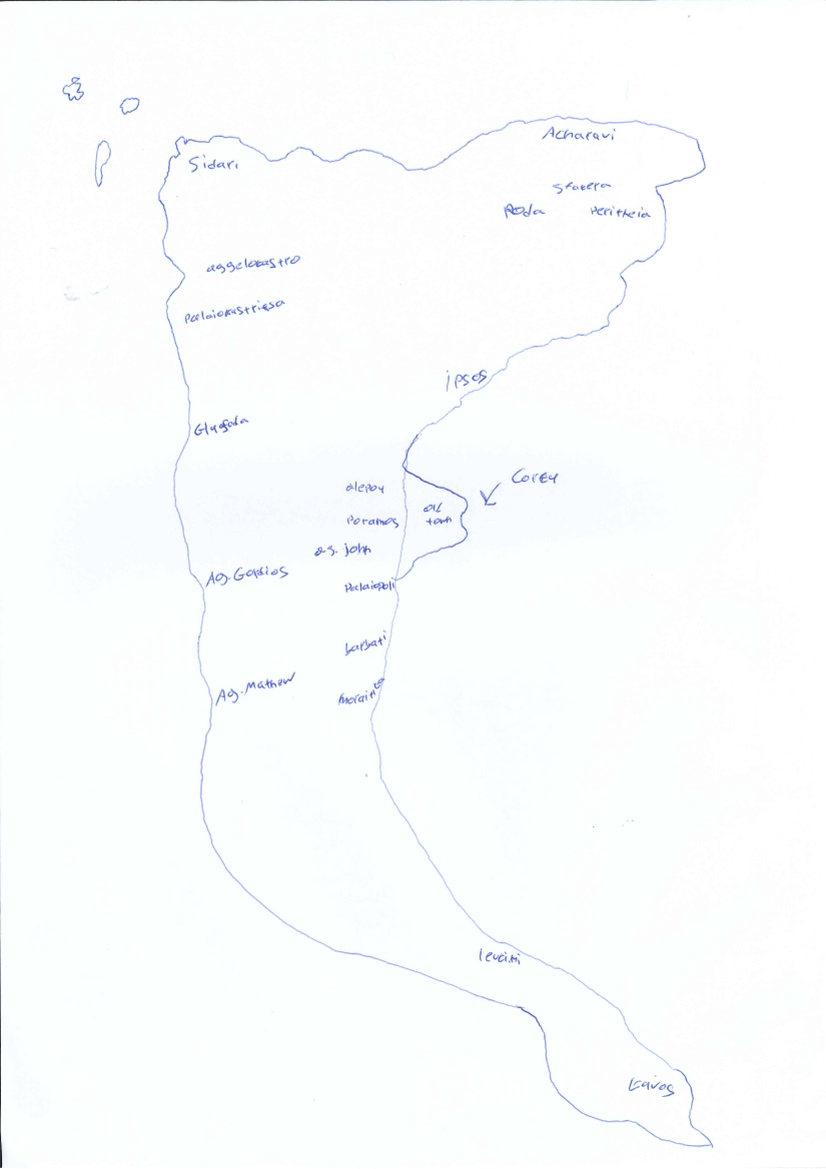 Acharavi
Sidari
Sfakera
Roda
Peritheia
aggelokastro
Palaiokastritsa
ipsos
Glyfada
Corfu
alepou
old
town
Potamos
ag. john
Ag. Gordios
Palaiopoli
barbati
Ag. Mathew
moraiti
leukimi
kavos